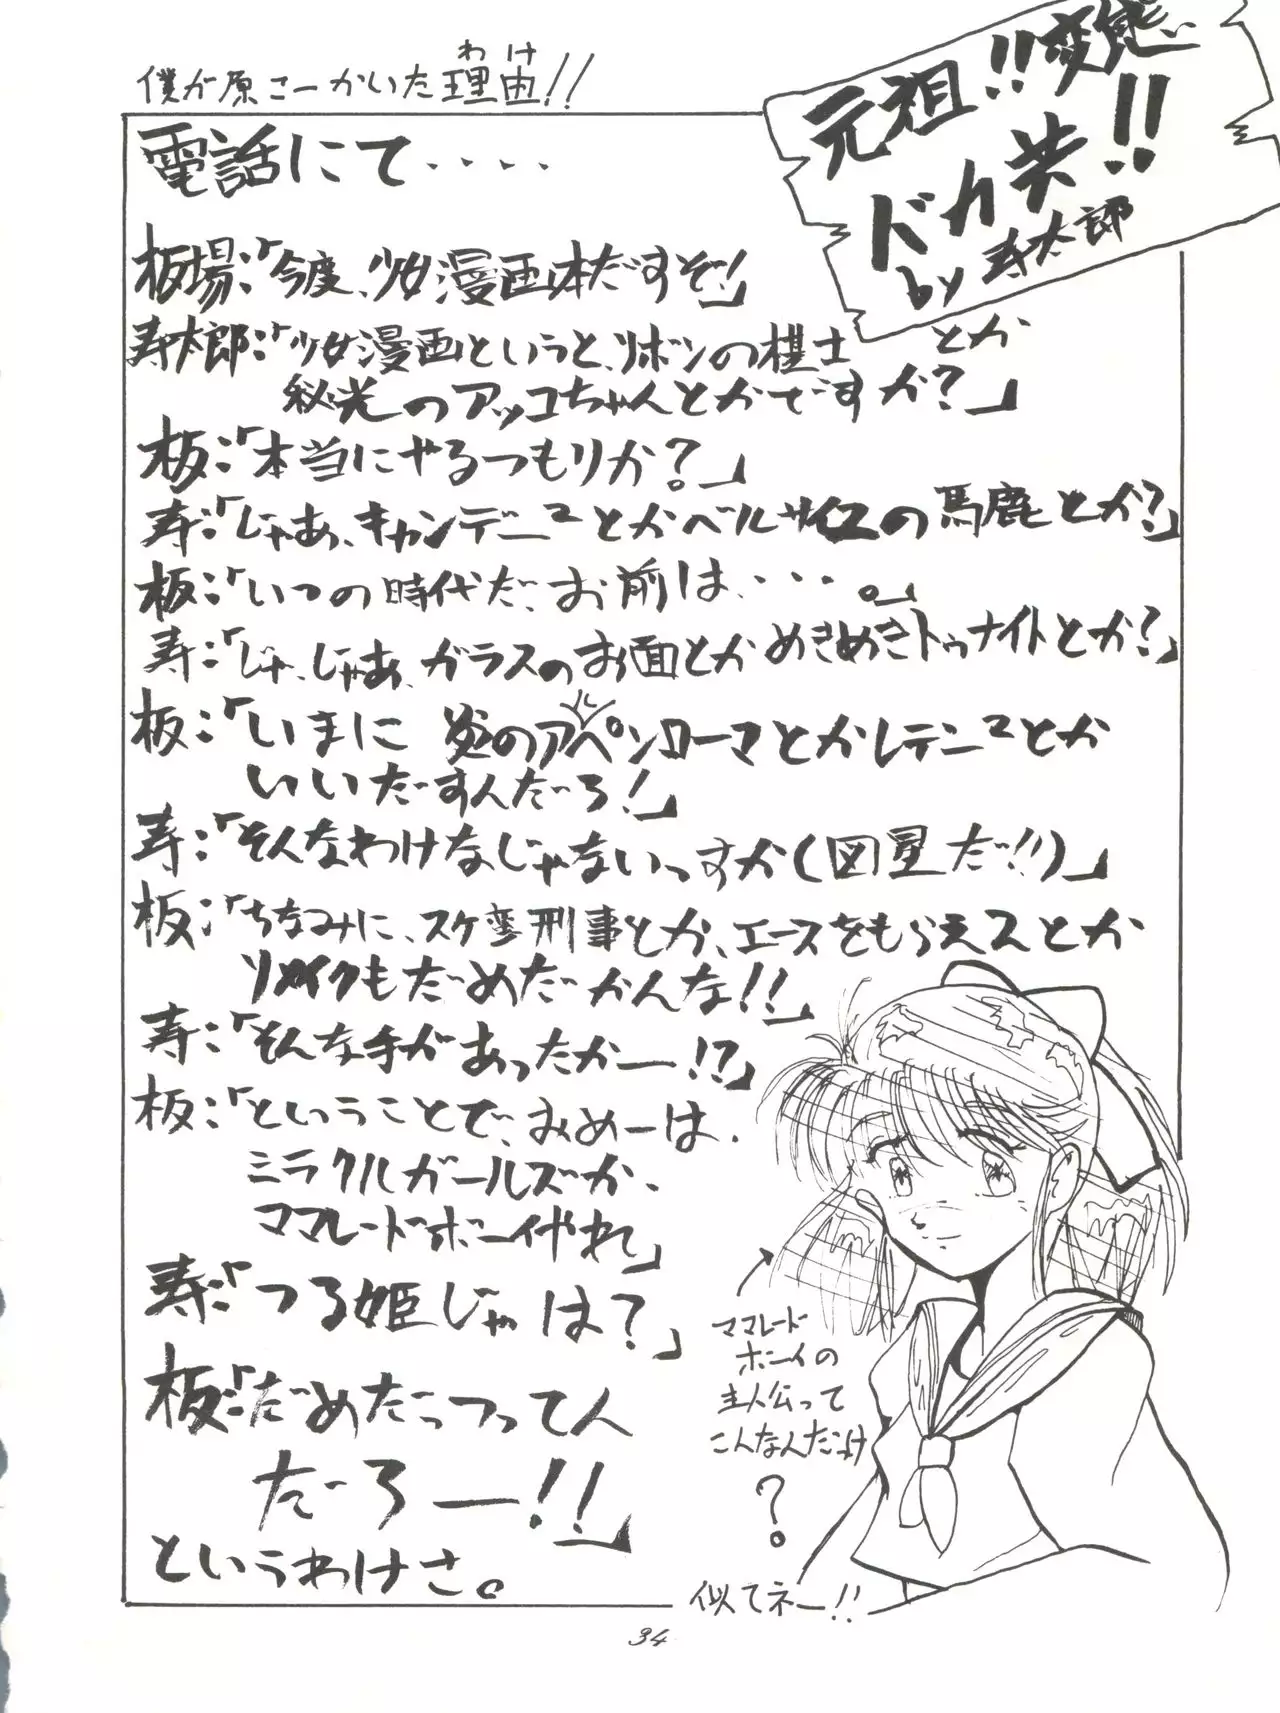 僕が原さーかいた理由!!
わけ
元祖!!変態
ドカ共!!
by 寿太郎
電話にて・・・・
板場:「今度、少女漫画本だすぞ!」
寿太郎:「少女漫画というと、リボンの棋士とか
秘光のアッコちゃんとかですか?」
板:「本当にやるつもりか?。」
寿:「じゃあ、キャンデニ2とかベルサイユの馬鹿とか?」
板:「いつの時代だ、お前は・・・。」
寿:「じゃ、じゃあ、ガラスのお面とかめきめきトゥナイトとか?」
板:「いまに 炎のアルペンローマとかレテニ2とか
いいだすんだろ!」
寿:「そんなわけなじゃないっすか(図星だ!!)」
板:「ちなみに、スケ番刑事とか、エースをもらえ2とか
リメイクもだめだかんな!!」
寿:「そんな手があったかー!?」
板:「ということで、おめーは、
ミラクルガールズか、
ママレードボーイやれ」
寿:「つる姫じゃは?」
板:「だめだっつってん
だろー!!」
というわけさ。
ママレード
ボーイの
主人公って
こんなんだっけ
?
似てネー!!
34